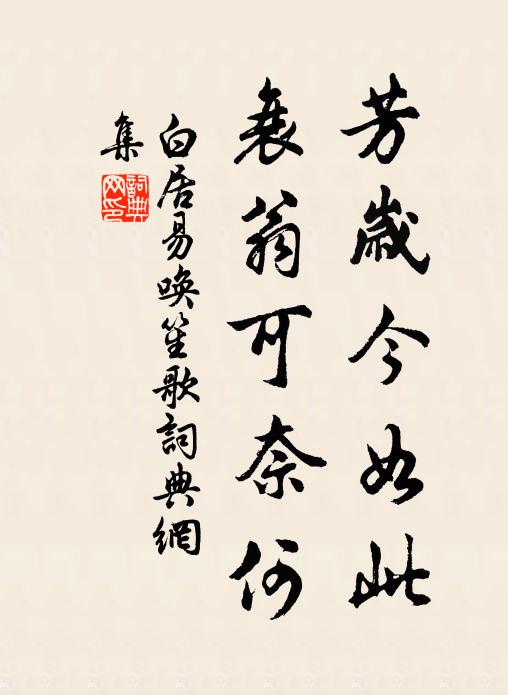 芳歲今如此
衰翁可奈何
白居易喚笙歌詞典網
集
詞典網印